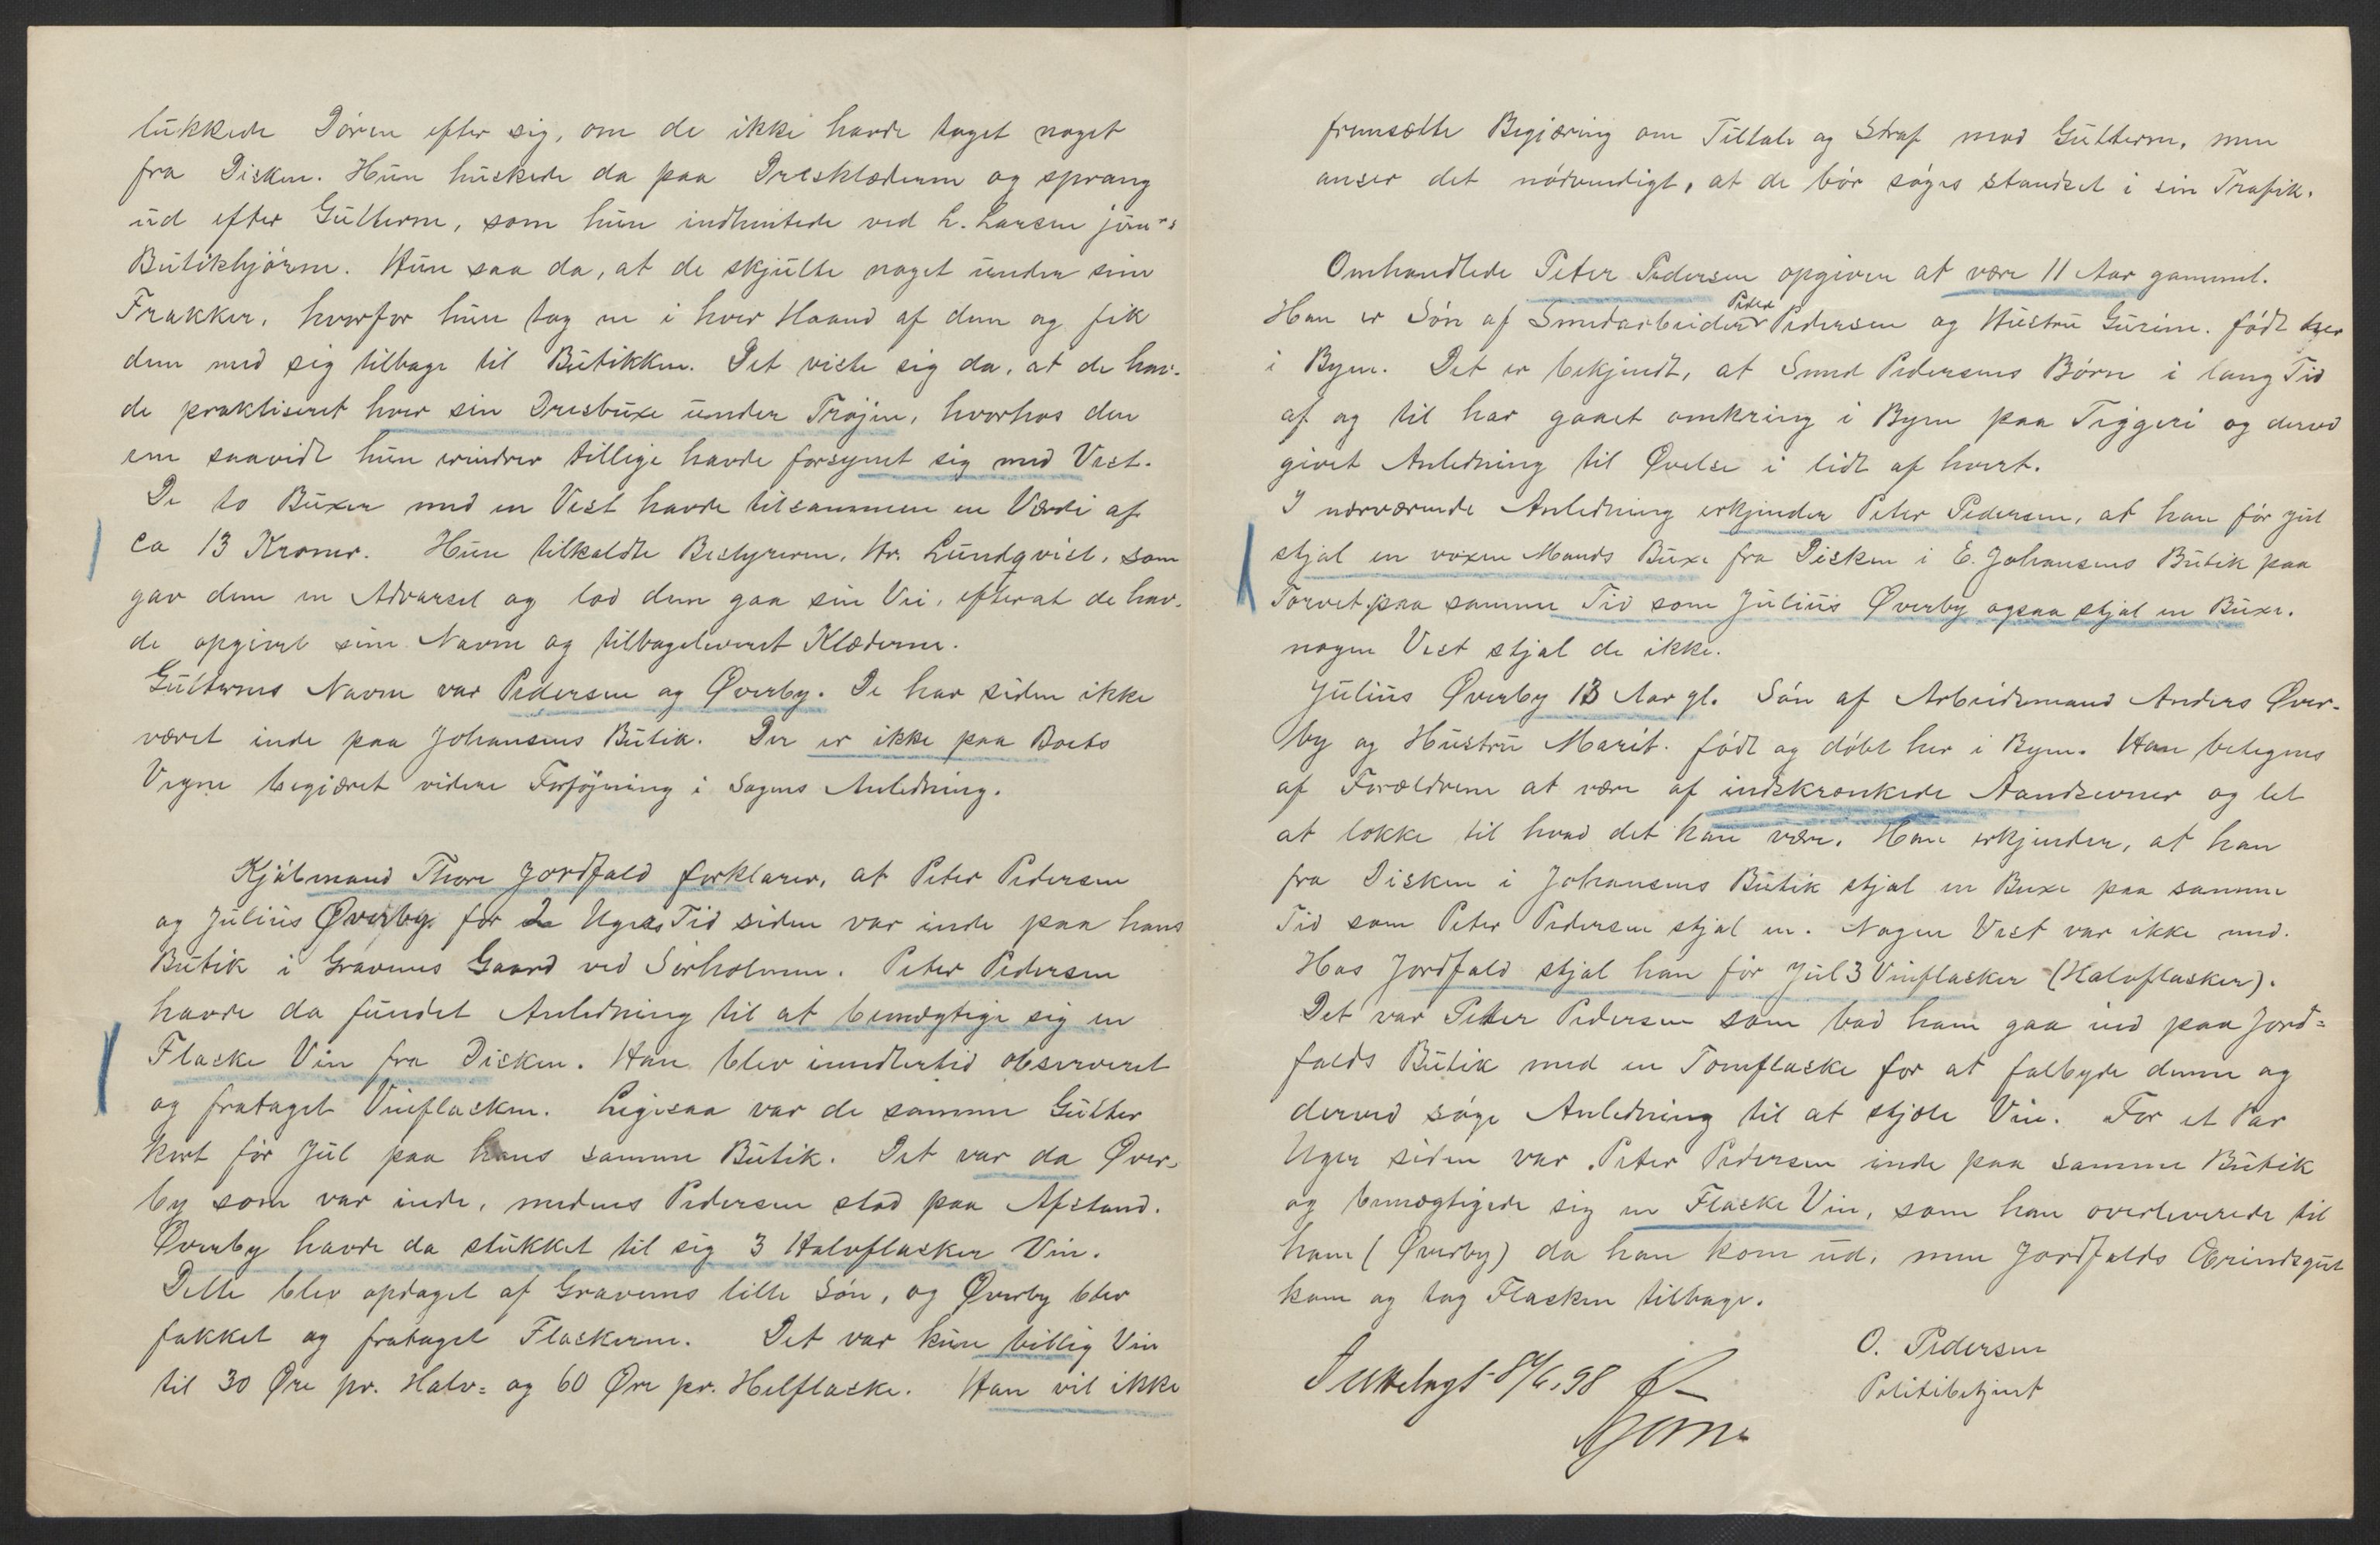 lukkede Døren efter sig, om de ikke havde taget noget
fra Disken. Hun huskede da paa Dresklæderne og sprang
ud efter Gutterne, som hun indhentede ved L. Larsen jun's
Butikhjørne. Hun saa da, at de skjulte noget under sine
Frakker, hvorfor hun tog en i hver Haand af dem og fik
dem med sig tilbage til Butikken. Det viste sig da, at de hav-
de praktiseret hver sin Dresbuxe under Trøjen, hvorhos den
ene saavidt hun erindrer tillige havde forsynet sig med Vest.
De to Buxer med en Vest havde tilsammen en Værdi af
ca 13 Kroner. Hun tilkaldte Bestyreren, Hr. Lundqvist, som
gav dem en Advarsel og lod dem gaa sin Vei, efterat de hav-
de opgivet sine Navne og tilbageleveret Klæderne.
Gutternes Navne var Pedersen og Øverby. De har siden ikke
været inde paa Johansens Butik. Der er ikke paa Boets
Vegne begjæret videre Forføjning i Sagens Anledning.
Kjøbmand Thore Jordfald forklarer, at Peter Pedersen
og Julius Øverby for 2 Ugers Tid siden var inde paa hans
Butik i Gravenes Gaard ved Sørholmen. Peter Pedersen
havde da fundet Anledning til at bemægtige sig en
Flaske Vin fra Disken. Han blev imidlertid observeret
og frataget Vinflasken. Ligesaa var de samme Gutter
kort før Jul paa hans samme Butik. Det var da Øver-
by som var inde, medens Pedersen stod paa Afstand.
Øverby havde da stukket til sig 3 Halvflasker Vin.
Dette blev opdaget af Gravenes lille Søn, og Øverby blev
fakket og frataget Flaskerne. Det var kun billig Vin
til 30 Øre pr. Halv= og 60 Øre pr. Helflaske. Han vil ikke
fremsætte Begjæring om Tiltale og Straf mod Gutterne, men
anser det nødvendigt, at de bør søges standset i sin Trafik.
Omhandlede Peter Pedersen opgiver at være 11 Aar gammel.
Han er Søn af Smedarbeider Peder Pedersen og Hustru Gurine. født her
i Byen. Det er bekjendt, at Smed Pedersens Børn i lang Tid
af og til har gaaet omkring i Byen paa Tiggeri og derved
givet Anledning til Øvelse i lidt af hvert.
I nærværende Anledning erkjender Peter Pedersen, at han før Jul
stjal en voxen Mands Buxe fra Disken i E. Johansens Butik paa
Torvet, paa samme Tid som Julius Øverby ogsaa stjal en Buxe.
nogen Vest stjal de ikke.
Julius Øverby 13 Aar gl. Søn af Arbeidsmand Anders Øver-
by og Hustru Marit. født og døbt her i Byen. Han betegnes
af Forældrene at være af indskrænkede Aandsevner og let
at lokke til hvad det kan være. Han erkjender, at han
fra Disken i Johansens Butik stjal en Buxe paa samme
Tid som Peter Pedersen stjal en. Nogen Vest var ikke med.
Hos Jordfald stjal han før Jul 3 Vinflasker (Halvflasker).
Det var Peter Pedersen som bad ham gaa ind paa Jord=
falds Butik med en Tomflaske for at falbyde denne og
derved søge Anledning til at stjæle Vin. For et Par
Uger siden var Peter Pedersen inde paa samme Butik
og bemægtigede sig en Flaske Vin, som han overleverede til
ham (Øverby) da han kom ud, men Jordfalds Ærindsgut
kom og tog Flasken tilbage.
O. Pedersen
Politibetjent
98